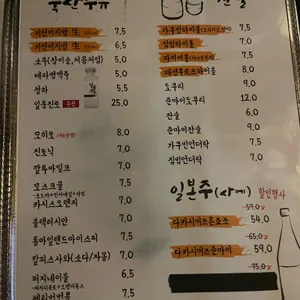 기린이치방 生 7.5
기린이치방 生 6.5
소주(참이슬,처음처럼) 5.0
메타병맥주 5.0
청하 5.5
일품진로 추천 25.0
모히또 8.0
진토닉 7.0
깔루아밀크 7.0
모스크뮬 7.5
카시스오렌지 7.0
블랙러시안 7.0
롱아일랜드아이스티 7.5
칼피스사와(소다/자몽) 7.0
퍼지네이블 6.5
잔술
7.5
짐빔하이볼 7.0
7.5
8.0
도쿠리 9.0
준마이도쿠리 12.0
잔술 6.0
준마이잔술 9.0
가쿠빈언더락 7.0
짐빔언더락 7.0
일본주(사케) 할인행사
59.0
다카시미즈혼죠조 54.0
다카시미즈준마이 59.0
75.0